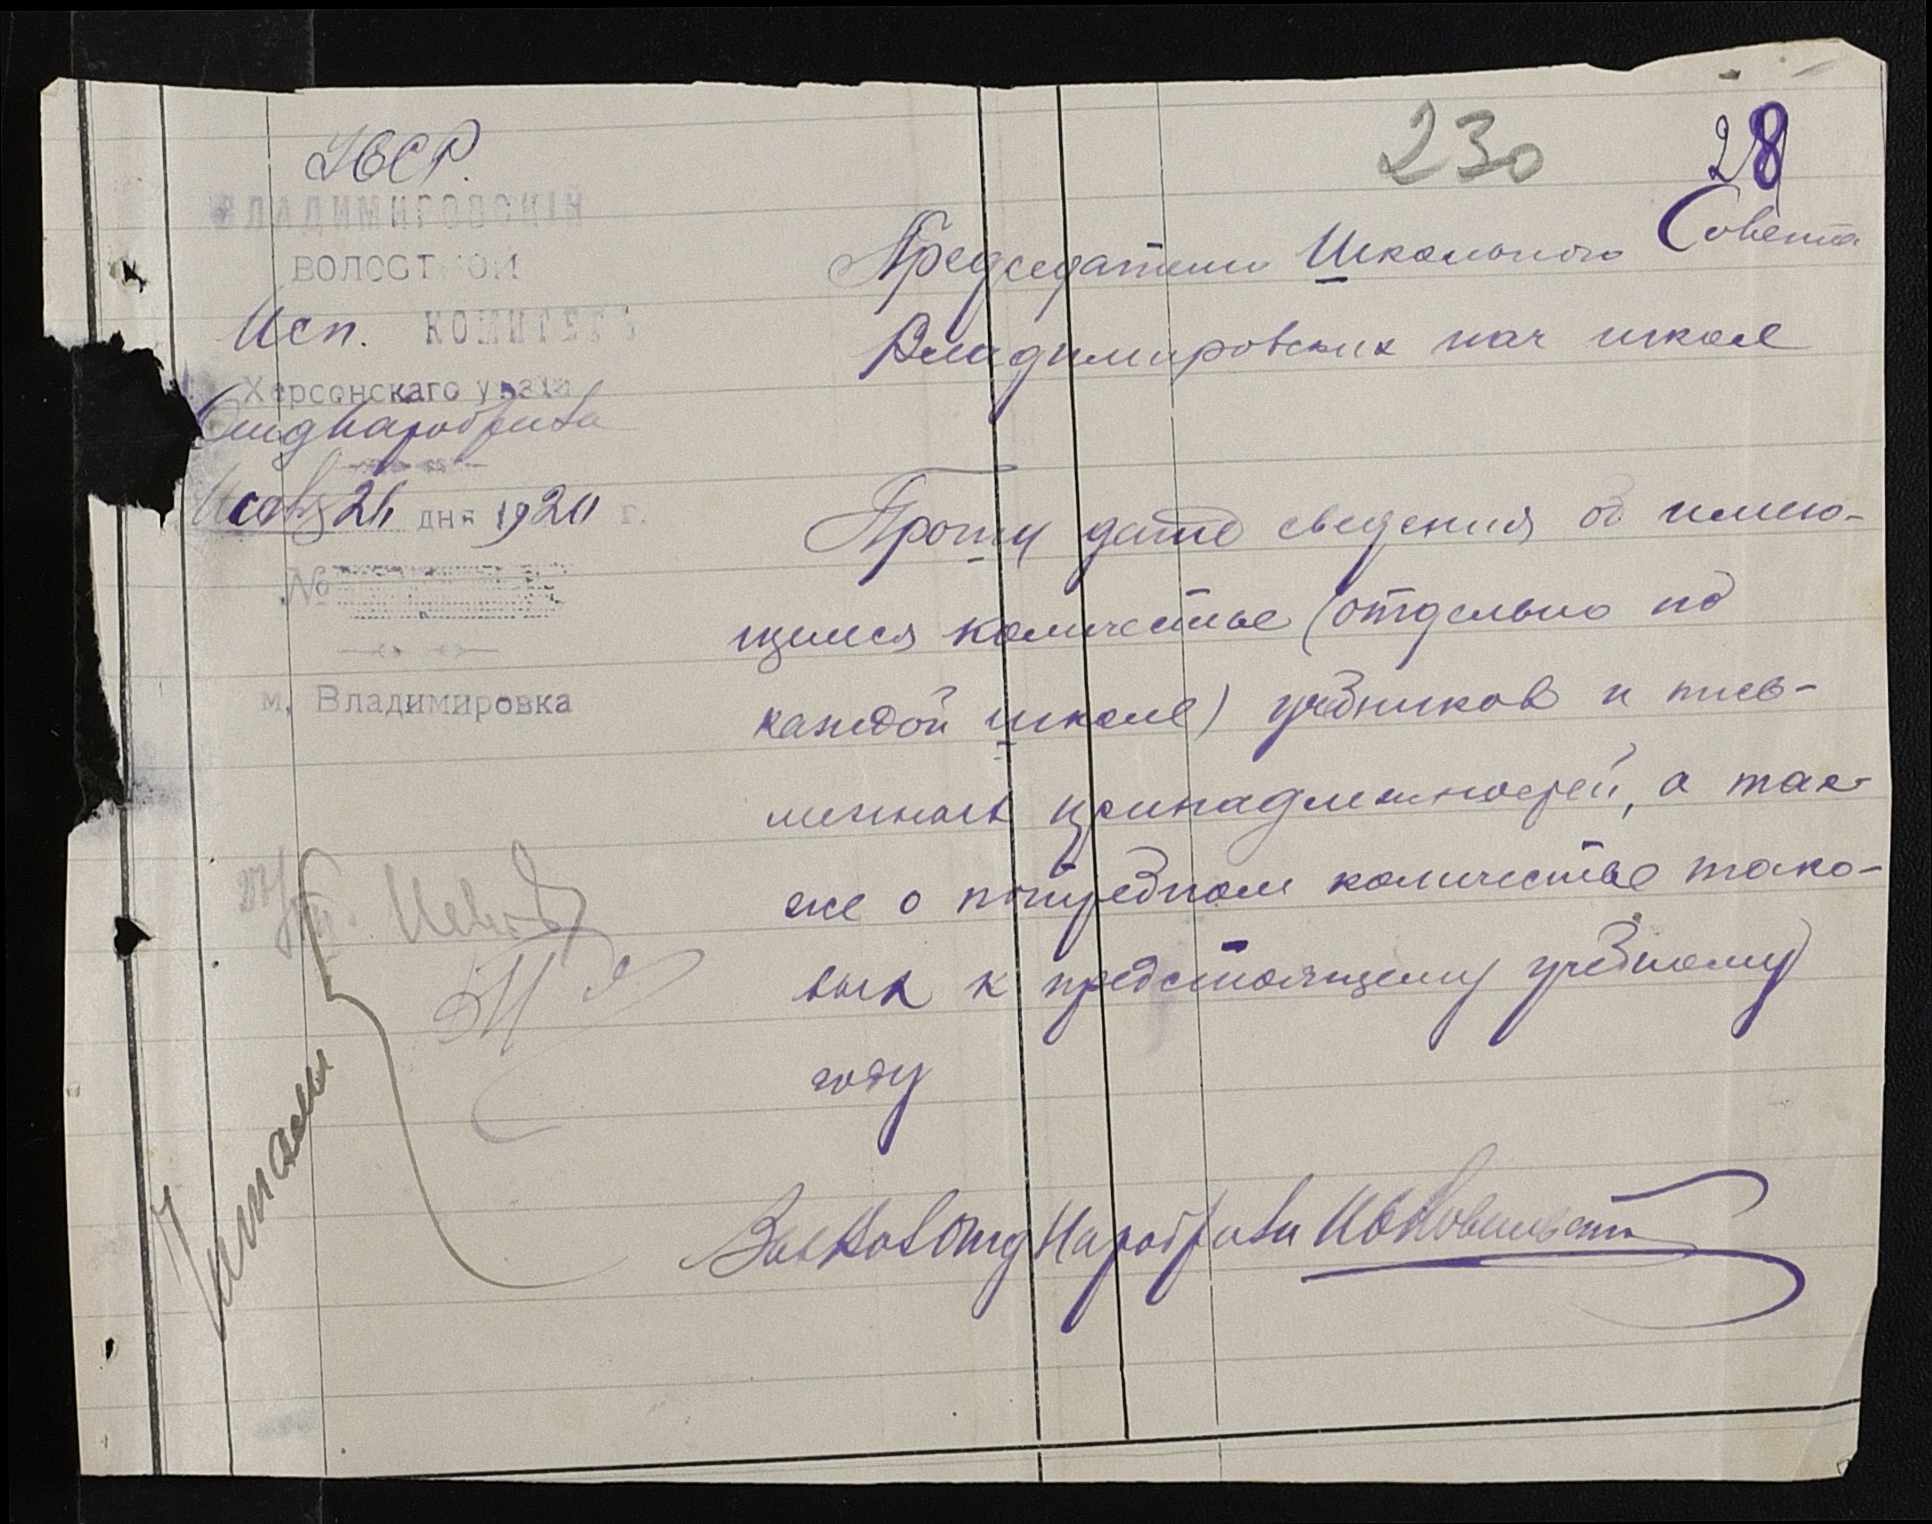 230 28
УССР.
ВЛАДИМИРОВСКІЙ
ВОЛОСТНОЙ
Исп. КОМИТЕТЪ
Херсонскаго уѣзда
Отд Народобраза
26 дня 1920 г.
№
м. Владимировка
Председателю Школьного Совета
Владимировских нач школ
Прошу дать сведения об имею-
щимся количестве (отдельно по
каждой школе) учебников и пись-
менных принадлежностей, а так-
же о потребном количестве тако-
вых к предстоящему учебному
году
Отд Народобраза
Читали